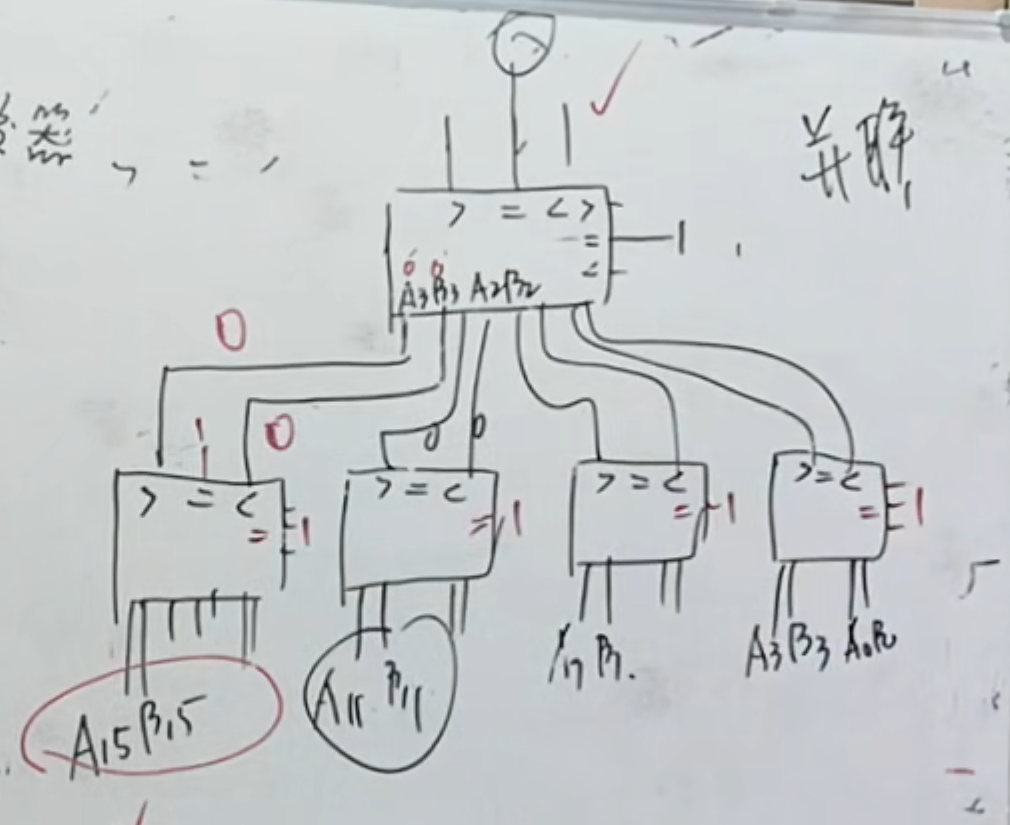 > = <
> = < >
=
<
1
0 0
A3 B3 A2 B2
0
1 0
0 0
> = <
= 1
> = <
= 1
> = <
= 1
> = <
= 1
A15 B15
A11 B11
A7 B7
A3 B3 A0 B0